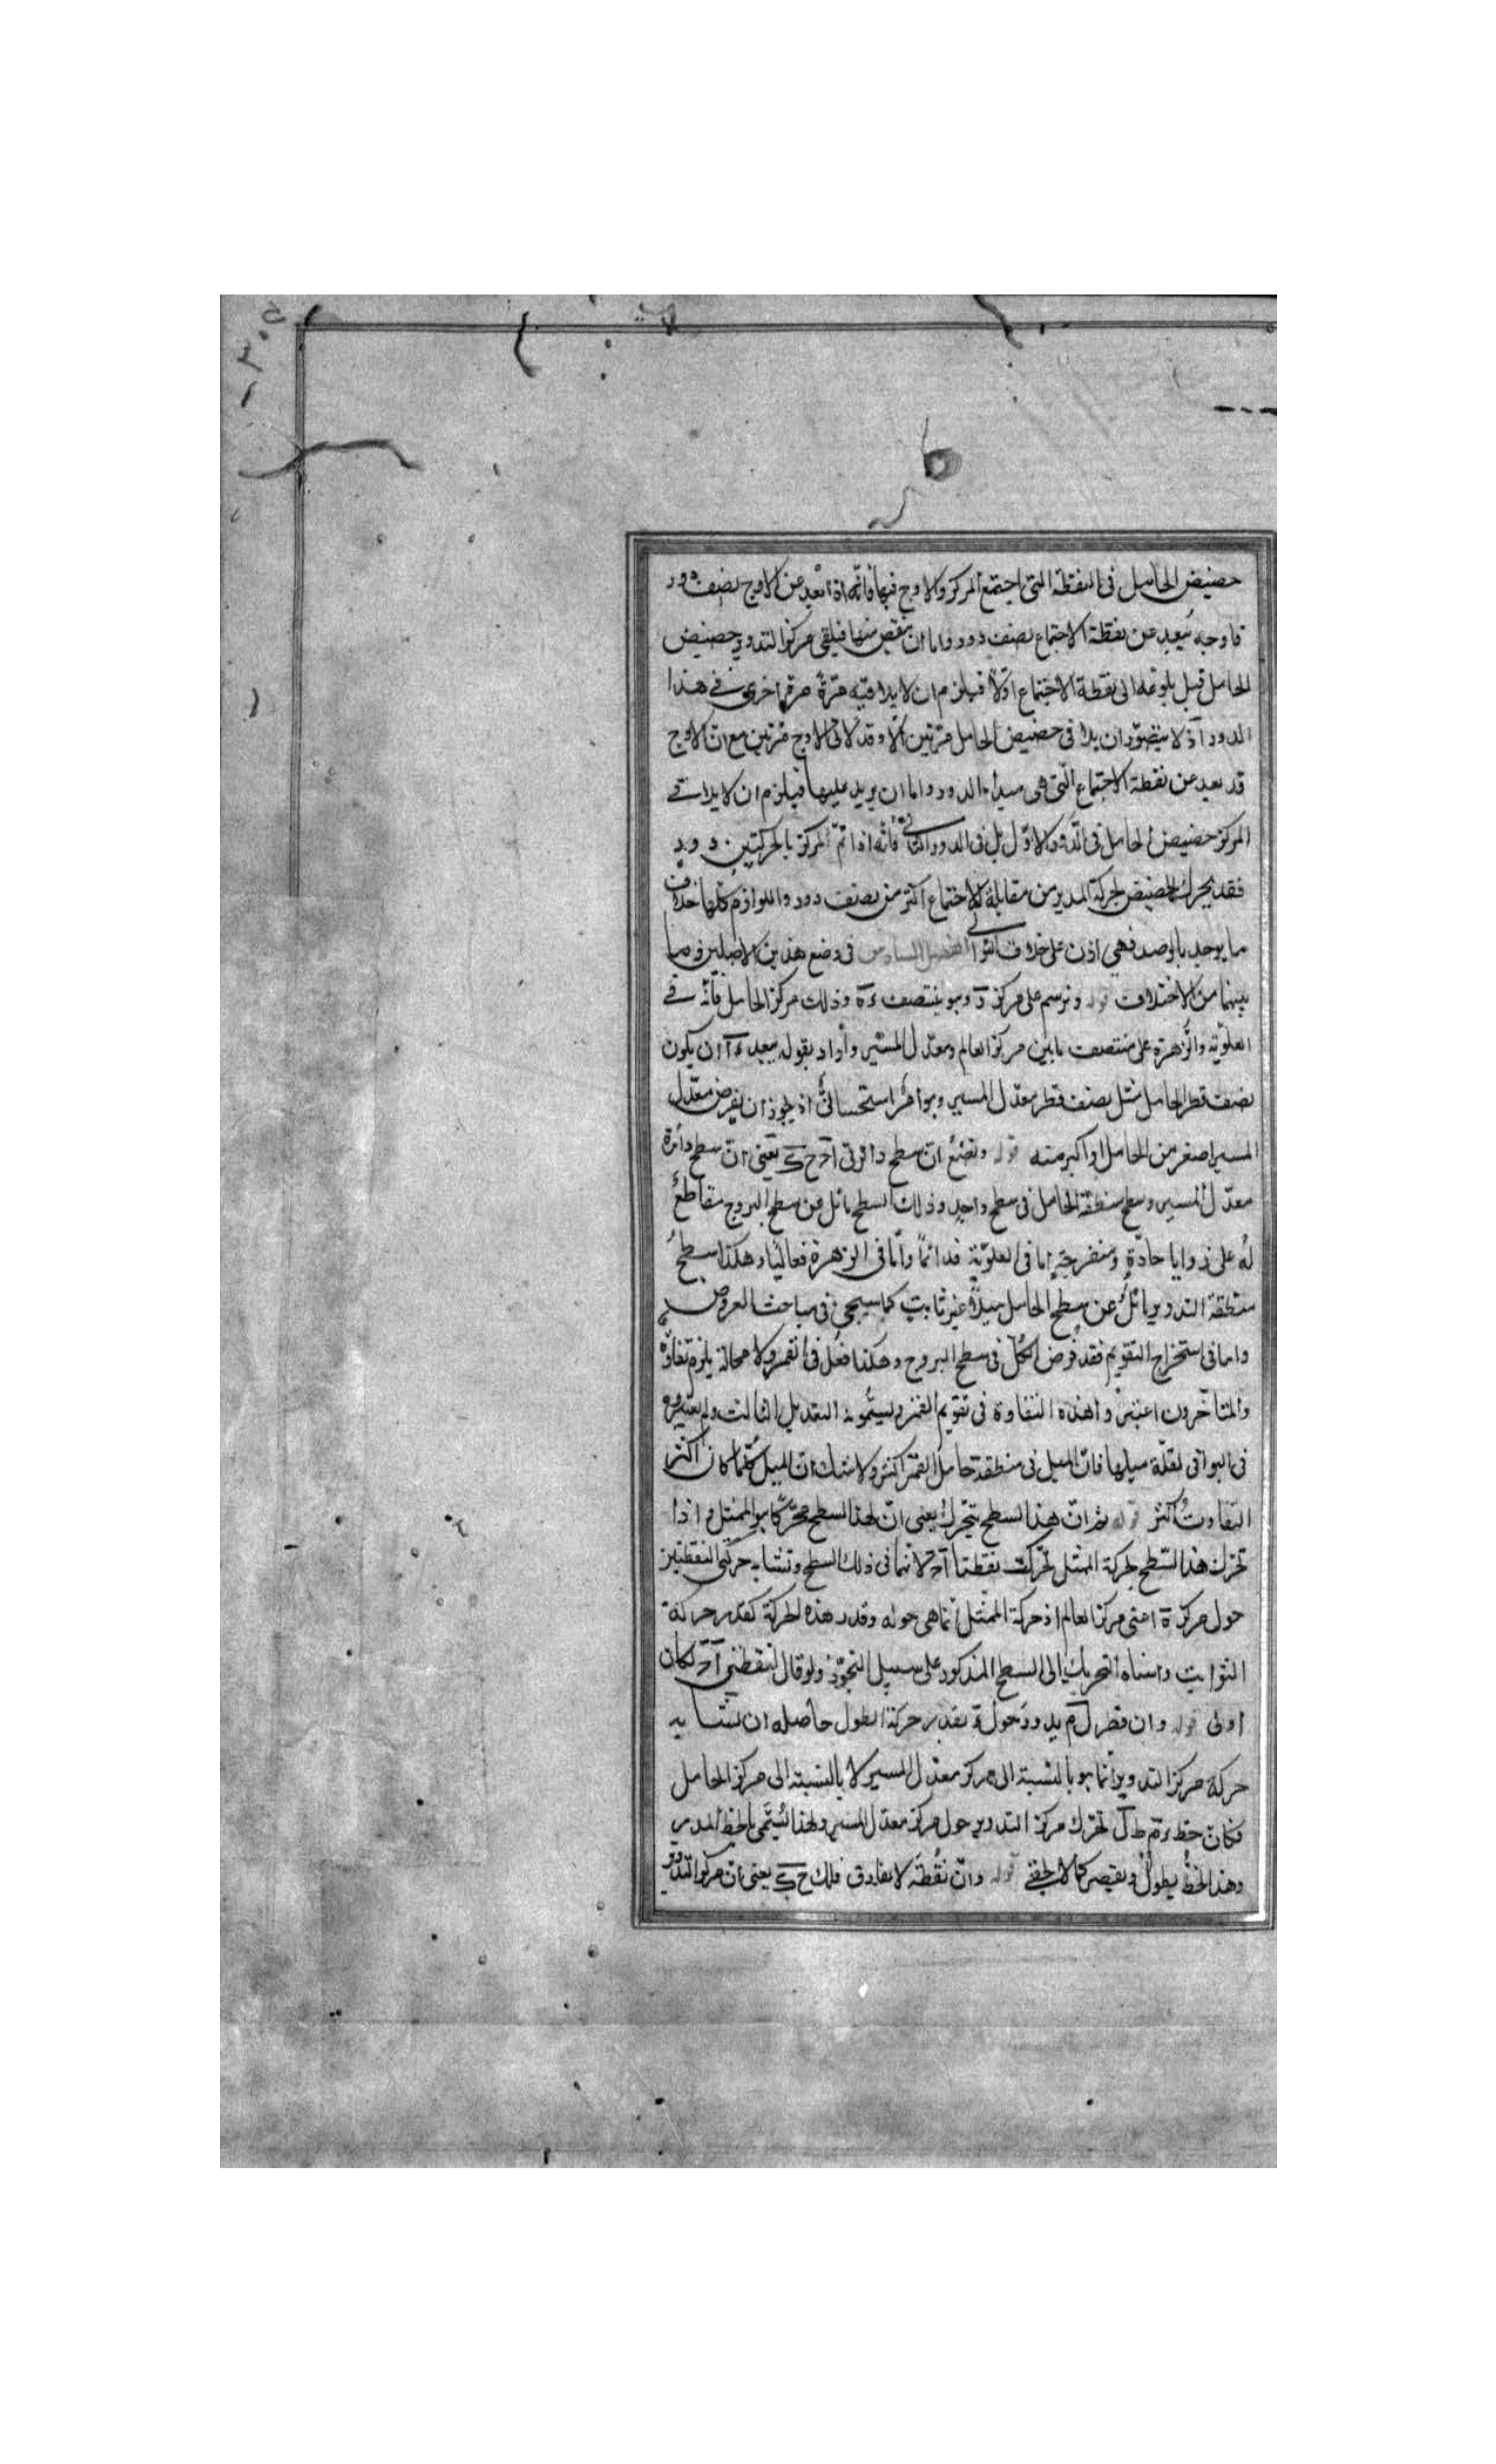 حضيض الحامل فى النقطة التى اجتمع المركز والاوج فيها فانّه اذا بعد عن الاوج نصف دور
فاوجه يبعد عن نقطة الاجتماع نصف دور واما ان ينقص منها فيلقى مركز التدوير حضيض
الحامل قبل بلوغه الى نقطة الاجتماع اوّلا فيلزم ان لا يلاقيه مرّة اخرى فى هذا
الدور اذ لا يتصوّر ان يلاقى حضيض الحامل مرّتين الّا وقد لاقى الاوج مرّتين مع انّ الاوج
قد بعد عن نقطة الاجتماع الّتى هى مبدأ الدور واما ان يزيد عليها فيلزم ان لا يلاقى
المركز حضيض الحامل فى الدور الاوّل بل فى الدور الثانى فانّه اذا تمّ المركز بالحركتين دور
فقد يحرك الحضيض لحركة المدير من مقابلة الاجتماع اكثر من نصف دور واللوازم كلها خلاف
ما يوجد بالرصد فهى اذن على خلاف التوالى الفصل السادس فى وضع هذين الاصلين وما
بينهما من الاختلاف قوله ونرسم على مركز د وهو منتصف ءه وذلك مركز الحامل فانّه فى
العلويّة والزهرة على منتصف ما بين مركز العالم ومعدّل المسير واراد بقوله ببعد ءا ان يكون
نصف قطر الحامل مثل نصف قطر معدّل المسير وهو امر استحسانىّ اذ يجوز ان يفرض معدّل
المسير اصغر من الحامل او اكبر منه قوله ونضع انّ سطح دائرتى اح ح ك يعنى انّ سطح دائرة
معدّل المسير وسطح منطقة الحامل فى سطح واحد وذلك السطح مائل عن سطح البروج مقاطع
له على زوايا حادّة ومنفرجة اما فى العلويّة فدائما وامّا فى الزهرة فغالبا وهكذا سطح
منطقة التدوير مائل عن سطح الحامل ميلا غير ثابت كما سيجئ فى مباحث العروض
واما فى استخراج التقويم فقد فرض الكلّ فى سطح البروج وهكذا فعل فى القمر ولا محالة يلزم تفاوت
والمتأخّرون اعتبروا هذه التفاوة فى تقويم القمر ويسمّونه التعديل الثالث ولم يعتبروه
فى البواقى لقلّة ميلها فانّ الميل فى منطقة حامل القمر اكثر ولا شك انّ الميل كلّما كان اكثر
التفاوت اكثر قوله ثم انّ هذا السطح يتحرّك يعنى انّ لهذا السطح محرّكا هو الممثل واذا
تحرّك هذا السّطح بحركة الممثل تحرّكت نقطتا اح لانّهما فى ذلك السطح وتتشابه حركتى النقطتين
حول مركز ه اعنى مركز العالم اذ حركة الممثل انّما هى حوله وقدر هذه الحركة كقدر حركة
الثوابت واسناد التحريك الى السطح المذكور على سبيل التجوّز ولو قال لنقطتى اح لكان
اولى قوله وان قطر ل م يدور حول ء بقدر حركة الطول حاصله ان تشابه
حركة مركز التدوير انّما هو بالنسبة الى مركز معدّل المسير لا بالنسبة الى مركز الحامل
فكان خط ءم ط ل تحرّك مركز التدوير حول مركز معدّل المسير ولهذا يسمّى بالخط المدير
وهذا الخطّ يطول ويقصر كما لا يخفى قوله وانّ نقطة لا تفارق فلك ح ك يعنى انّ مركز التدوير